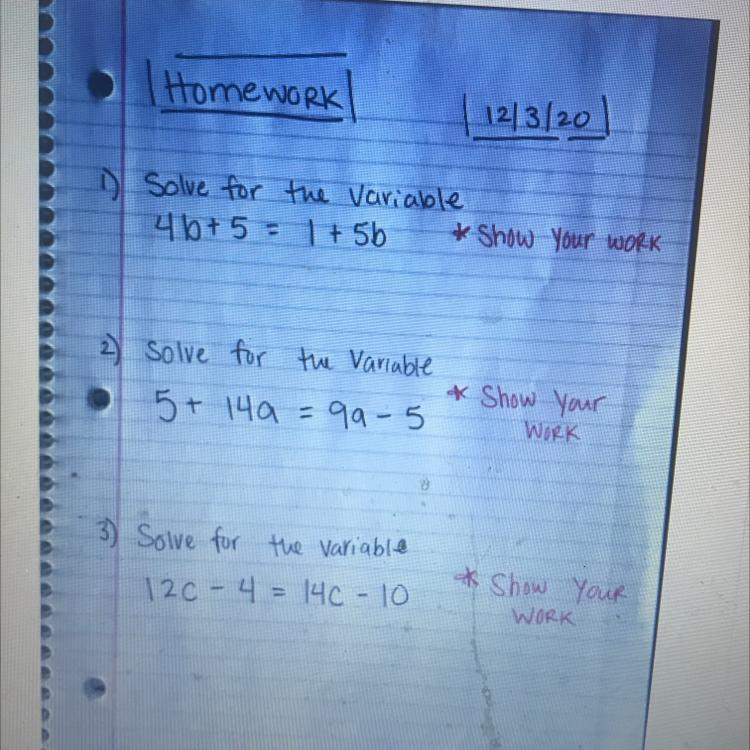 Homework
12/3/20
1) Solve for the variable
4b + 5 = 1 + 5b * Show Your work
2) Solve for the Variable
5 + 14a = 9a - 5 * Show Your
work
3) Solve for the variable
12c - 4 = 14c - 10 * Show Your
work